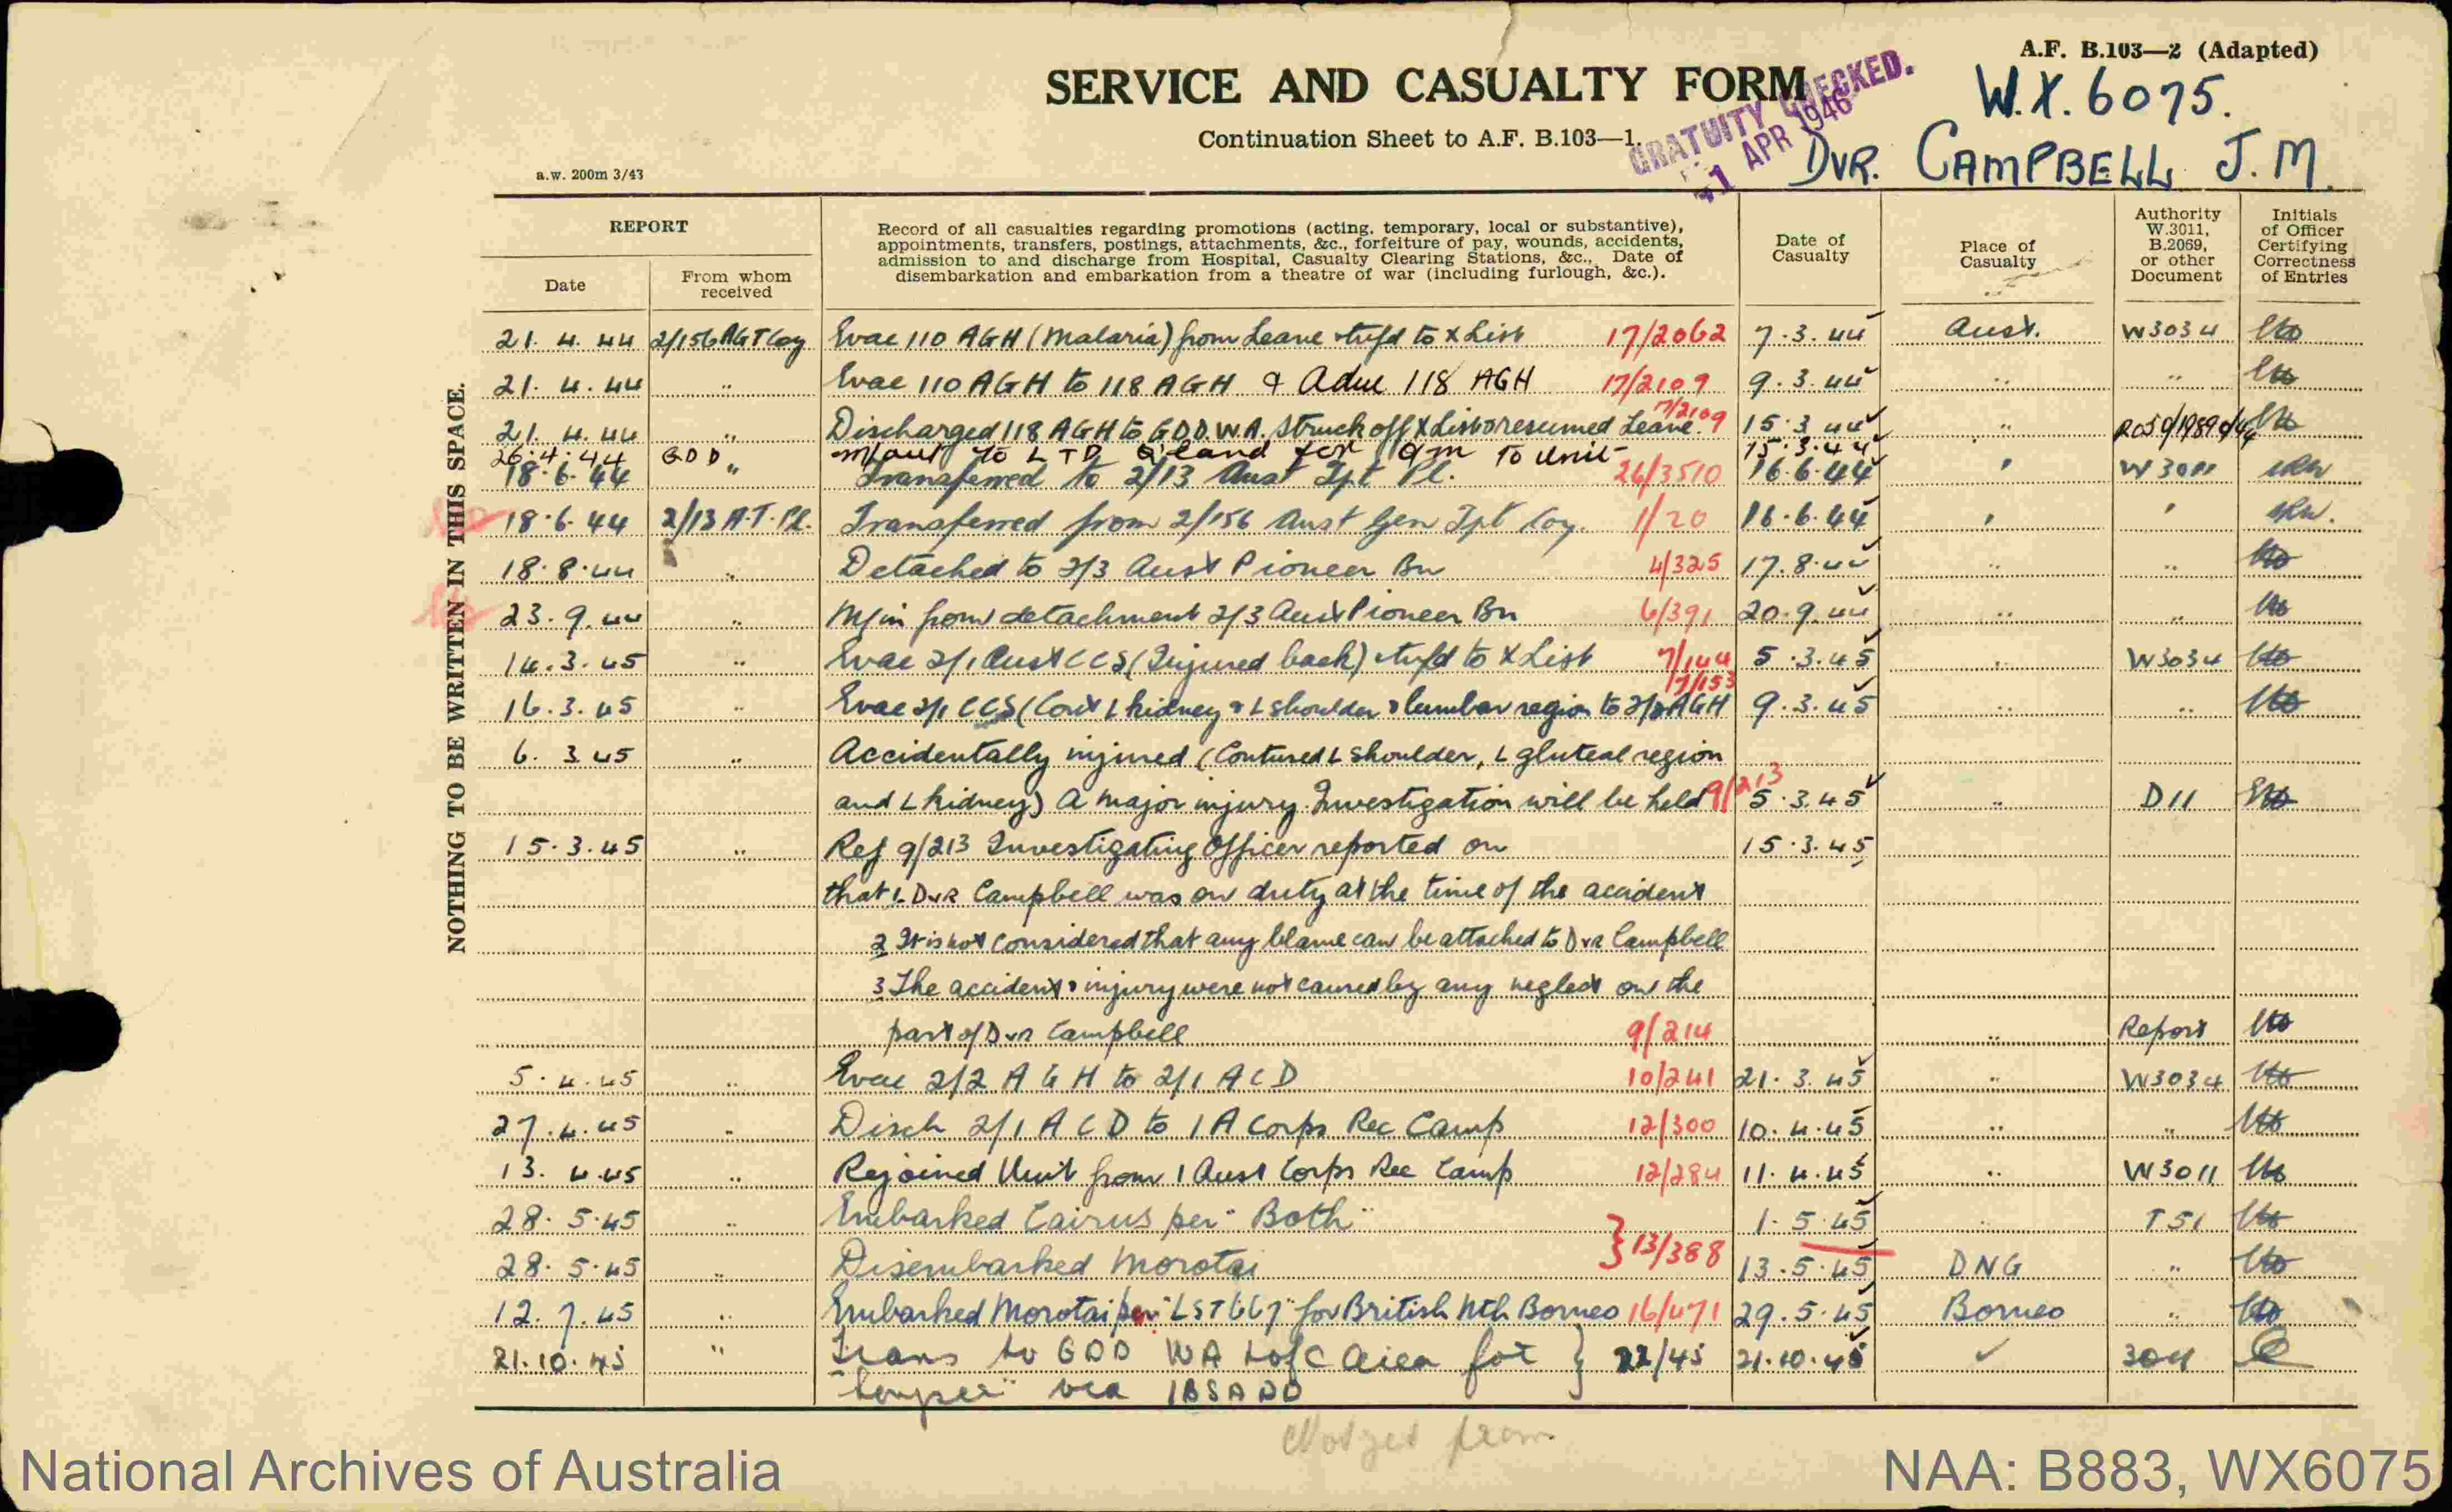 A.F. B.103—2 (Adapted)
SERVICE AND CASUALTY FORM
W.X. 6075.
Continuation Sheet to A.F. B.103—1.
GRATUITY CHECKED.
1 APR 1946
DVR. CAMPBELL J. M.
a.w. 200m 3/43
NOTHING TO BE WRITTEN IN THIS SPACE.
REPORT
Date
From whom received
Record of all casualties regarding promotions (acting, temporary, local or substantive),
appointments, transfers, postings, attachments, &c., forfeiture of pay, wounds, accidents,
admission to and discharge from Hospital, Casualty Clearing Stations, &c., Date of
disembarkation and embarkation from a theatre of war (including furlough, &c.).
Date of Casualty
Place of Casualty
Authority W.3011, B.2069, or other Document
Initials of Officer Certifying Correctness of Entries
21. 4. 44 2/156 AGT Coy Evac 110 AGH (Malaria) from Leave & tsfd to X List 17/2062 7.3.44 Aust. W3034
21. 4. 44 " Evac 110 AGH to 118 AGH & Adm 118 AGH 17/2109 9.3.44 " "
21. 4. 44 " Discharged 118 AGH to G.D.D. W.A. Struck off X List & resumed Leave. 17/2109 15.3.44 "
26.4.44 GDD m/out to LTD Q'land for o/m to Unit 15.3.44
18.6.44 " Transferred to 2/13 Aust Tpt Pl. 26/3510 16.6.44 " W3011
18.6.44 2/13 A.T. Pl. Transferred from 2/156 Aust Gen Tpt Coy. 1/20 16.6.44 " "
18.8.44 " Detached to 2/3 Aust Pioneer Bn 4/325 17.8.44 " "
23.9.44 " M/in from detachment 2/3 Aust Pioneer Bn 6/391 20.9.44 " "
14.3.45 " Evac 2/1 Aust CCS (Injured back) & tsfd to X List 7/144 5.3.45 " W3034
16.3.45 " Evac 2/1 CCS (Cont L kidney & L shoulder & lumbar region to 2/2 AGH 7/153 9.3.45 " "
6.3.45 " Accidentally injured (Contused L shoulder, L gluteal region
and L kidney) A major injury Investigation will be held 9/213 5.3.45 " D11
15.3.45 " Ref 9/213 Investigating Officer reported on 15.3.45
that 1. Dvr Campbell was on duty at the time of the accident
2 It is not considered that any blame can be attached to Dvr Campbell
3 The accident & injury were not caused by any neglect on the
part of Dvr Campbell 9/214 " Report
5.4.45 " Evac 2/2 AGH to 2/1 ACD 10/241 21.3.45 " W3034
27.4.45 " Disch 2/1 ACD to 1 A Corps Rec Camp 12/300 10.4.45 " "
13.4.45 " Rejoined Unit from 1 Aust Corps Rec Camp 12/284 11.4.45 " W3011
28.5.45 " Embarked Cairns per "Both" 1.5.45 " T51
28.5.45 " Disembarked Morotai } 13/388 13.5.45 DNG "
12.7.45 " Embarked Morotai per "LST 667" for British Nth Borneo 16/471 29.5.45 Borneo "
21.10.45 " Trans to GDD WA L of C Area for } 22/45 21.10.45 ✓ 3011
via 1BSADD
Not yet from
National Archives of Australia
NAA: B883, WX6075